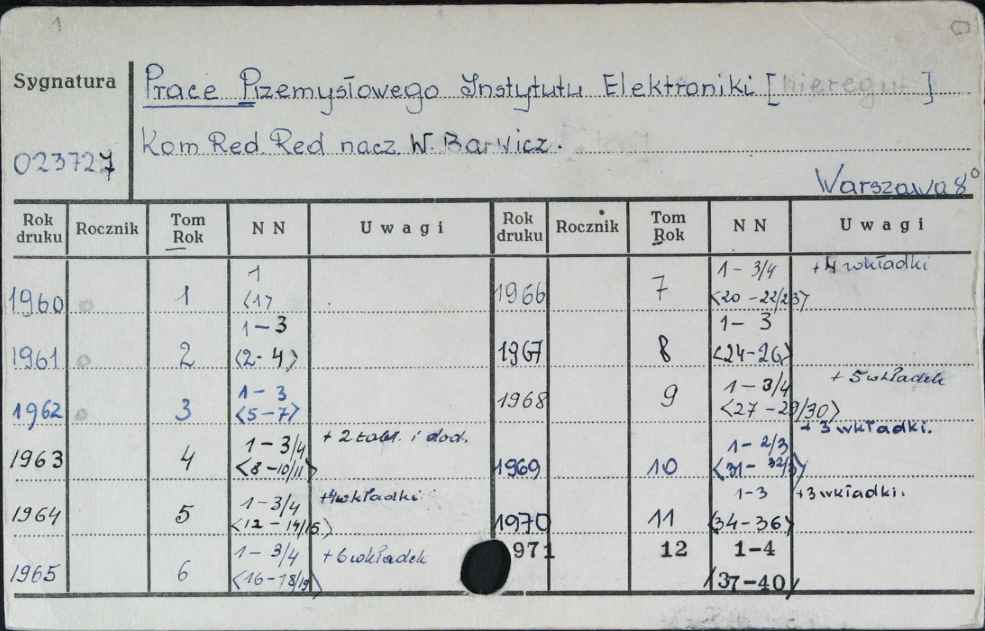 1
Sygnatura
Prace Przemysłowego Instytutu Elektroniki [nieregul.]
023727
Kom Red. Red nacz. W. Barwicz.
Warszawa 8°
Rok druku Rocznik Tom Rok NN Uwagi Rok druku Rocznik Tom Rok NN Uwagi
1960 1 1 <1> 1966 7 1-3/4 <20-22/23> +4 wkładki
1961 2 1-3 <2-4> 1967 8 1-3 <24-26>
1962 3 1-3 <5-7> 1968 9 1-3/4 <27-29/30> +5 wkładek
1963 4 1-3/4 <8-10/11> +2 tabl. i dod. 1969 10 1-2/3 <31-32/3> +3 wkładki.
1964 5 1-3/4 <12-14/15> +4 wkładki 1970 11 1-3 <34-36> +3 wkładki.
1965 6 1-3/4 <16-18/19> +6 wkładek 971 12 1-4 /37-40/